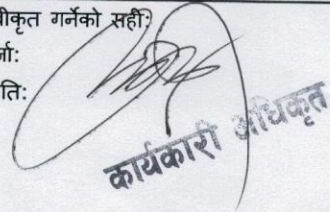 वीकृत गर्नेको सहीः
र्जा:
ति:
कार्यकारी अधिकृत